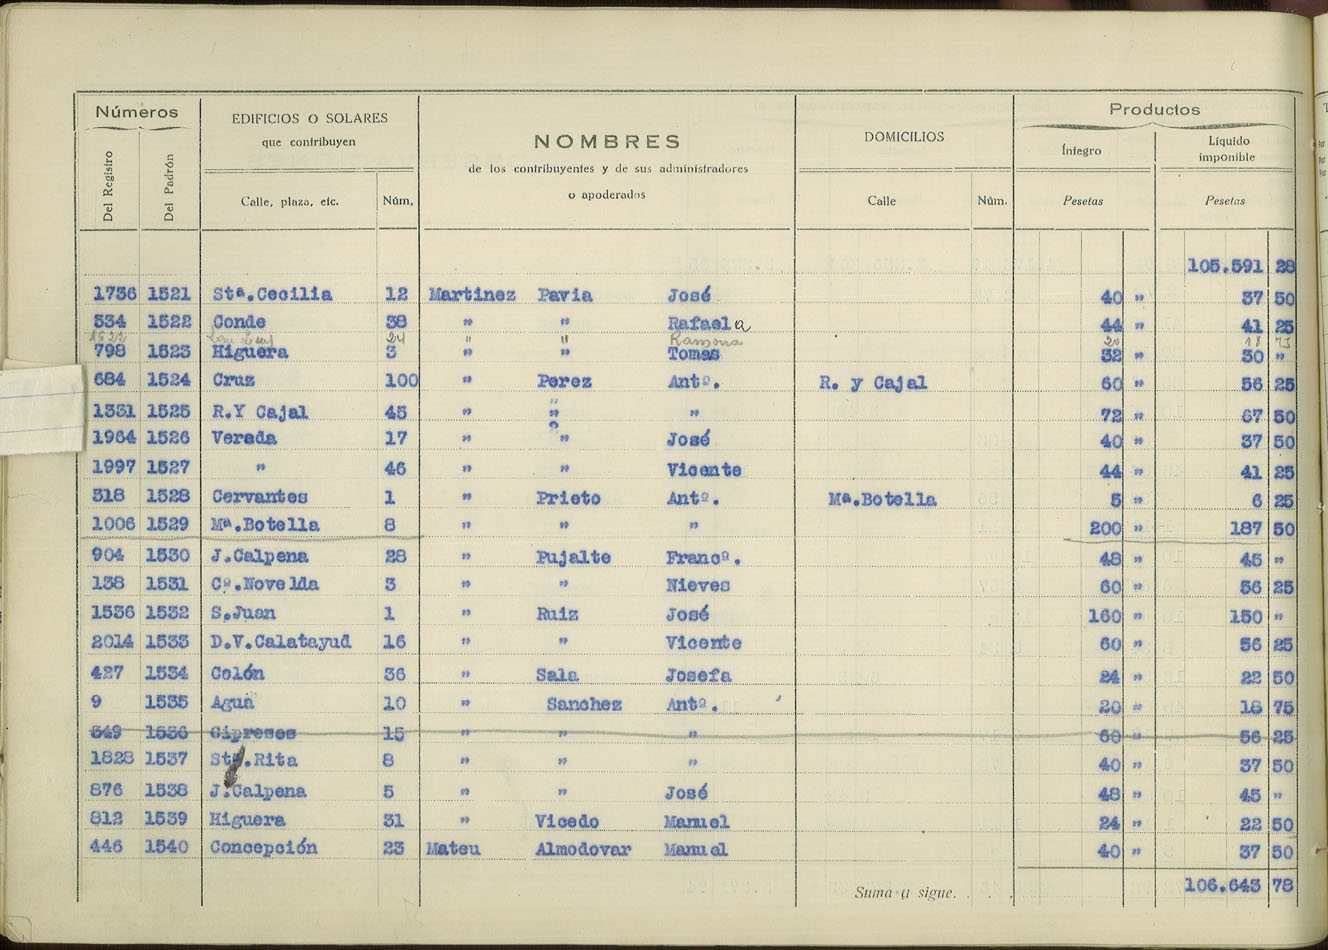 Números
EDIFICIOS O SOLARES
que contribuyen
NOMBRES
de los contribuyentes y de sus administradores
o apoderados
DOMICILIOS
Productos
Íntegro
Líquido
imponible
Del Registro
Del Padrón
Calle, plaza, etc.
Núm,
Calle
Núm.
Pesetas
Pesetas
105.591 28
1736 1521 Stª.Cecilia 12 Martinez Pavia José 40 " 37 50
534 1522 Conde 38 " " Rafaela 44 " 41 25
1522 24 " " Ramona 20 18 75
798 1523 Higuera 3 " " Tomas 32 " 30 "
684 1524 Cruz 100 " Perez Antº. R. y Cajal 60 " 56 25
1331 1525 R.Y Cajal 45 " " " 72 " 67 50
1964 1526 Vereda 17 " " José 40 " 37 50
1997 1527 " 46 " " Vicente 44 " 41 25
318 1528 Cervantes 1 " Prieto Antº. Mª.Botella 5 " 6 25
1006 1529 Mª.Botella 8 " " " 200 " 187 50
904 1530 J.Calpena 28 " Pujalte Francº. 48 " 45 "
138 1531 Cº.Novelda 3 " " Nieves 60 " 56 25
1536 1532 S.Juan 1 " Ruiz José 160 " 150 "
2014 1533 D.V.Calatayud 16 " " Vicente 60 " 56 25
427 1534 Colón 36 " Sala Josefa 24 " 22 50
9 1535 Agua 10 " Sanchez Antº. 20 " 18 75
349 1536 Cipreses 15 " " " 60 " 56 25
1828 1537 Stª.Rita 8 " " " 40 " 37 50
876 1538 J.Calpena 5 " " José 48 " 45 "
812 1539 Higuera 31 " Vicedo Manuel 24 " 22 50
446 1540 Concepción 23 Mateu Almodovar Manuel 40 " 37 50
Suma y sigue. . . . 106.643 78